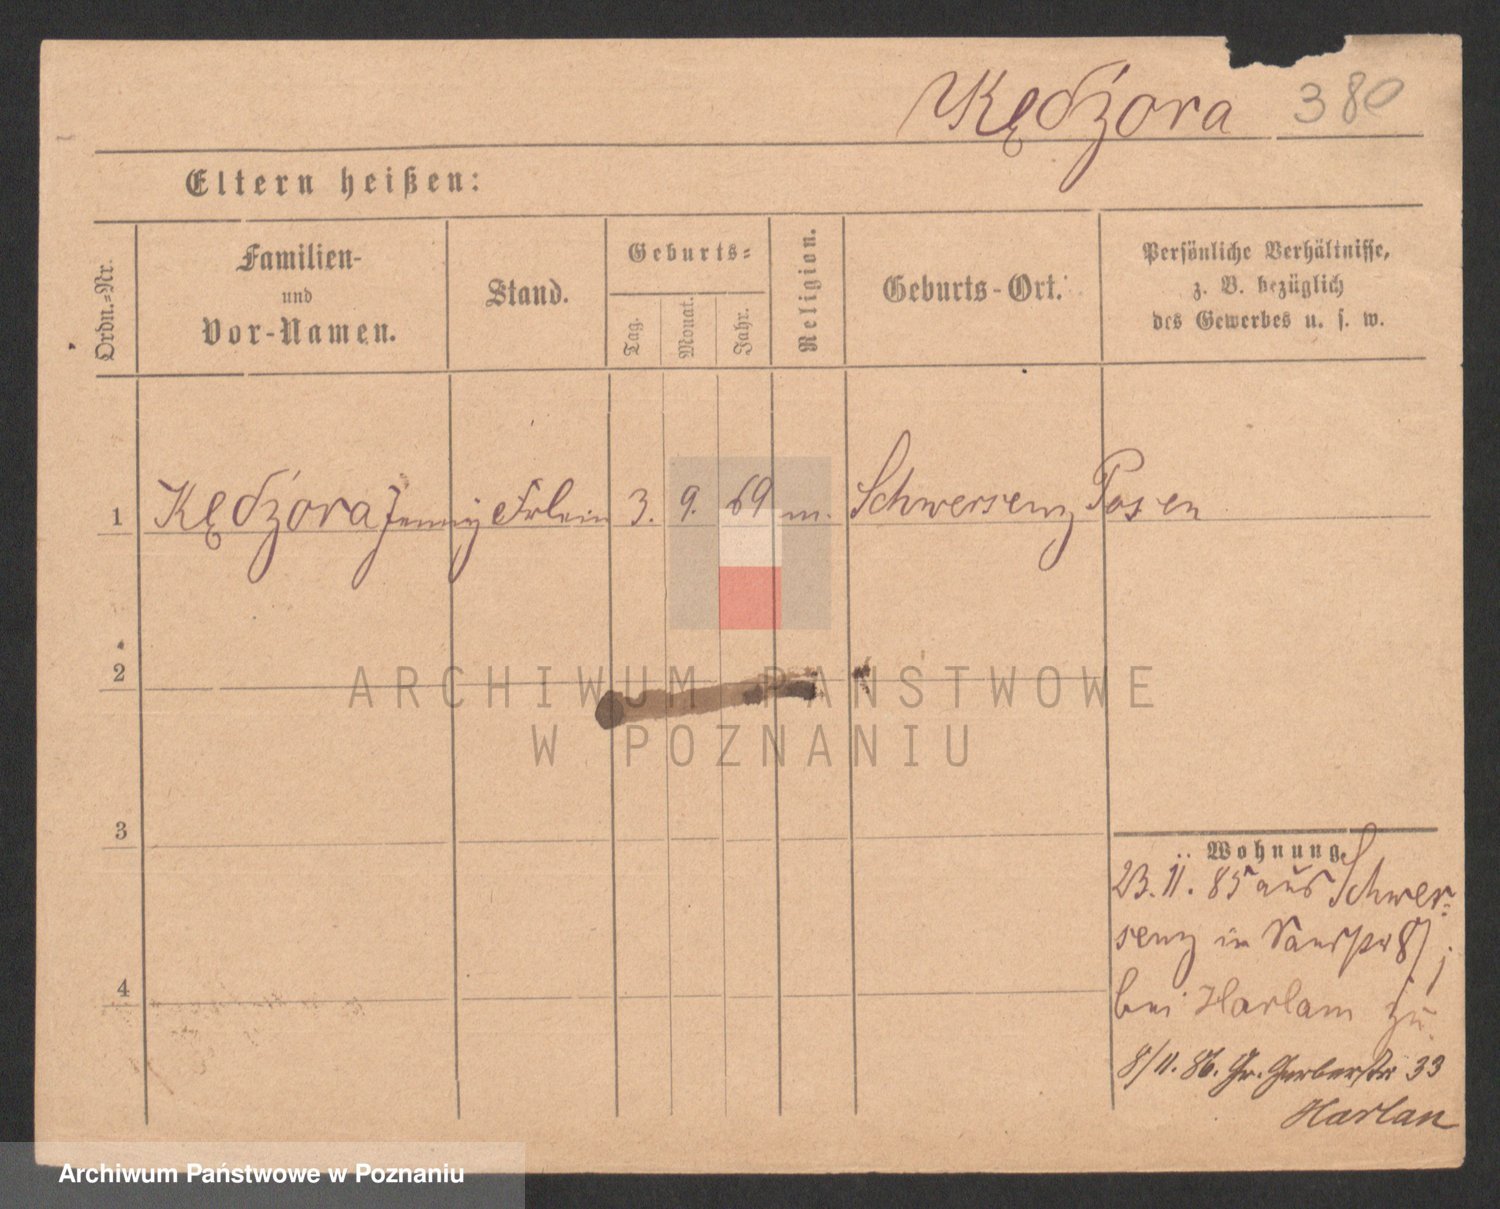 Kędźora 380
Eltern heißen:
Ordn.=Nr.
Familien-
und
Vor-Namen.
Stand.
Geburts=
Tag.
Monat.
Jahr.
Religion.
Geburts-Ort.
Persönliche Verhältnisse,
z. B. bezüglich
des Gewerbes u. s. w.
1 Kędźora Jenny Frlein 3. 9. 69 m. Schwersenz Posen
2
3
4
Wohnung
23. 11. 85 aus Schwer=
senz in 8/
bei Harlam zu
8/11. 86. Gr. Gerberstr 33
Harlan
ARCHIWUM PAŃSTWOWE
W POZNANIU
Archiwum Państwowe w Poznaniu